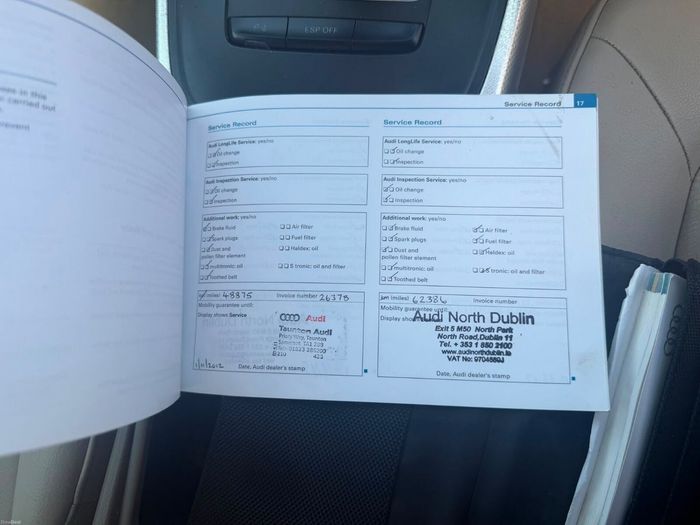 ESP OFF
Service Record 17
Service Record
Audi LongLife Service: yes/no
Oil change
Inspection
Audi Inspection Service: yes/no
Oil change
Inspection
Additional work: yes/no
Brake fluid
Air filter
Spark plugs
Fuel filter
Dust and
pollen filter element
Haldex: oil
multitronic: oil
S tronic: oil and filter
Toothed belt
km (miles) 48875 Invoice number 26375
Mobility guarantee until:
Display shows Service
Audi
Taunton Audi
Priory Way, Taunton
Somerset, TA1 2BB
1/11/2012
Date, Audi dealer's stamp
Service Record
Audi LongLife Service: yes/no
Oil change
Inspection
Audi Inspection Service: yes/no
Oil change
Inspection
Additional work: yes/no
Brake fluid
Air filter
Spark plugs
Fuel filter
Dust and
pollen filter element
Haldex: oil
multitronic: oil
S tronic: oil and filter
Toothed belt
km (miles) 62386 Invoice number
Mobility guarantee
Display
Audi North Dublin
Exit 5 M50 North Park
North Road, Dublin 11
Tel. + 353 1 850 2100
www.audinorthdublin.ie
Date, Audi dealer's stamp